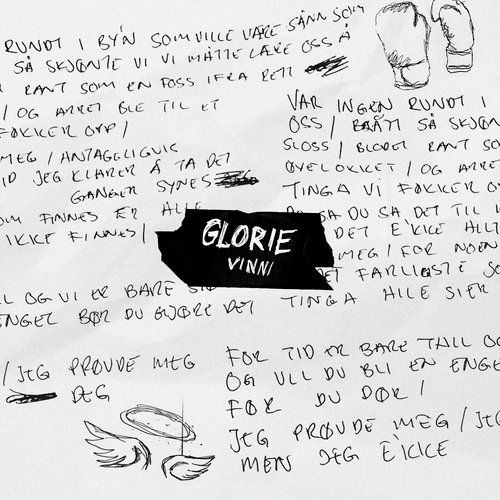 RUNDT I BY'N SOM VILLE VÆRE SÅNN SOM
SÅ SKJØNTE VI VI MÅTTE LÆRE OSS Å
RANT SOM EN FOSS IFRA RETT
/ OG ARRET BLE TIL ET
FØKKER OPP /
MEG / ANTAGGLIGVIS
JEG KLARER Å TA DET
GANGER SYNES
SOM FINNES ER ALLE
IKKE FINNES /
OG VI ER BARE
ENGEL BØR DU GJØRE DET
/ JEG PRØVDE MEG
DEG
VAR INGEN RUNDT I
OSS / BRÅTT SÅ SKJØN
SLOSS / BLODET RANT SOM
ØYELOKKET / OG ARRE
TINGA VI FØKKER O
SA DU SA DET TIL
DET E'KKE ALLT
MEG / FOR NOEN
DET FARLIGSTE S
TINGA ALLE SIER
GLORIE
VINNI
FOR TID ER BARE TALL OG
OG VLL DU BLI EN ENGE
FØR DU DØR /
JEG PRØVDE MEG / JE
MEN JEG E'KKE